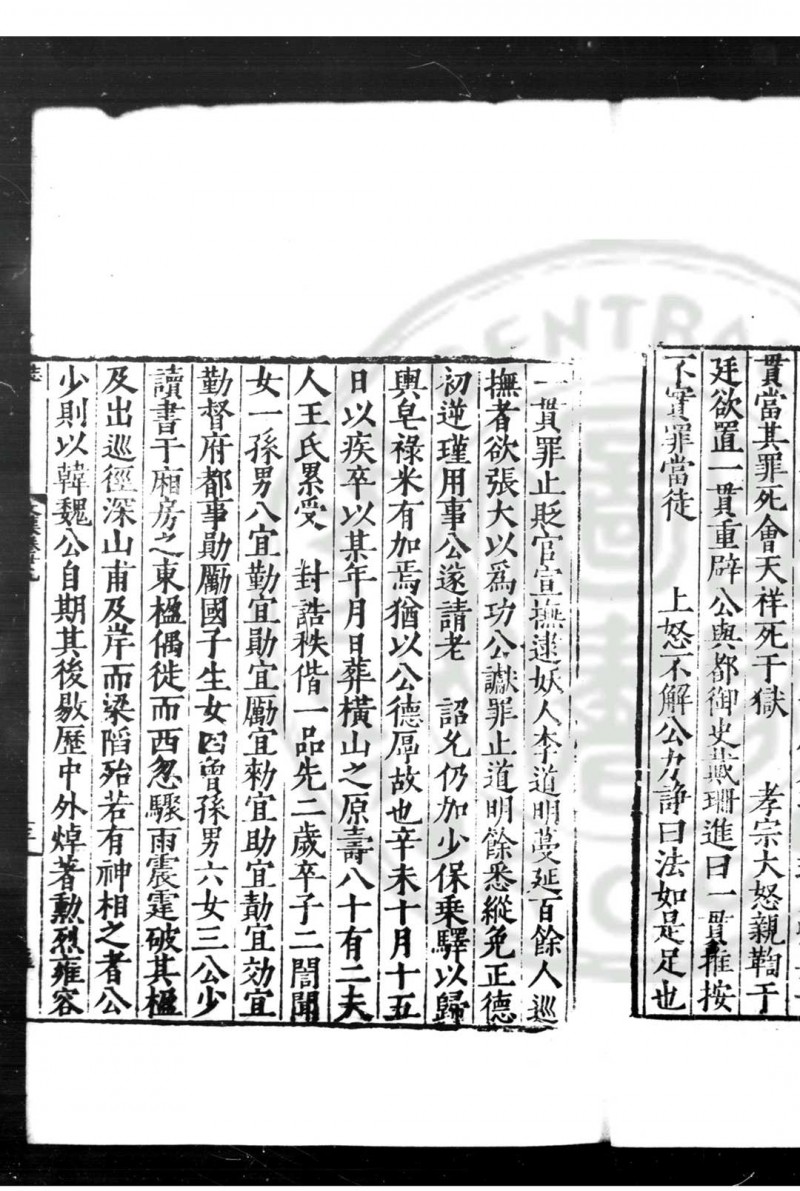 貫當其罪死會天祥死于獄　孝宗大怒親鞫于
廷欲置一貫重辟公與都御史戴珊進曰一貫推按
不實罪當徒　上怒不解公力諍曰法如是足也
一貫罪止貶官宣撫逮妖人李道明蔓延百餘人巡
撫者欲張大以為功公讞罪止道明餘悉縱免正德
初逆瑾用事公遂請老　詔允仍加少保乘驛以歸
輿皂祿米有加焉猶以公德厚故也辛未十月十五
日以疾卒以某年月日葬橫山之原壽八十有二夫
人王氏累受　封誥秩偕一品先二歲卒子二誾聞
女一孫男八宜勤宜勛宜勵宜勑宜助宜勣宜効宜
勤督府都事勛勵國子生女四曾孫男六女三公少
讀書于廂房之東楹偶徙而西忽驟雨震霆破其楹
及出巡徑深山甫及岸而梁陷殆若有神相之者公
少則以韓魏公自期其後敭歷中外焯著勳烈雍容
誌
CENTRA
圖書